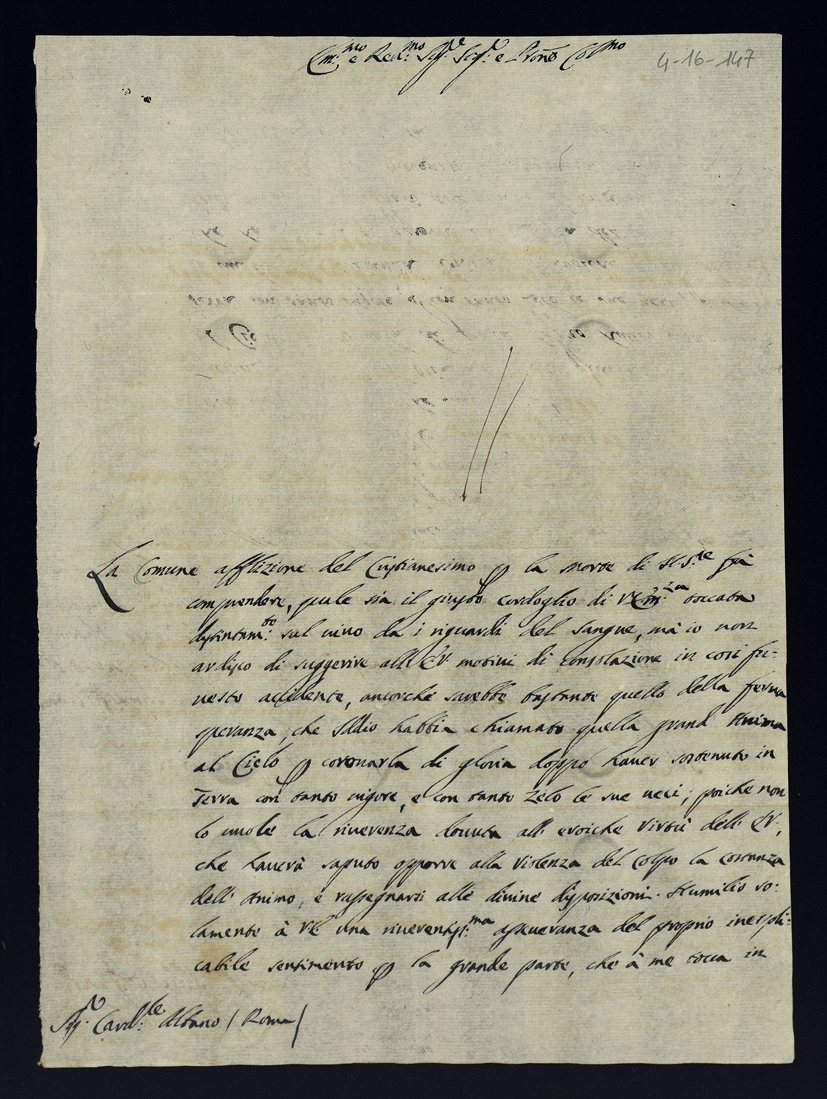 Em.mo e Rev.mo Sig.r Sig.r e Pron̄e Col.mo
4-16-147
La Comune afflizione del Cristianesimo p la morte di N. S.re fà
comprendere, quale sia il giusto cordoglio di V. Em.za toccata
distintam.te sul vivo da i riguardi del sangue, mà io non
ardisco di suggerire all' E.V. motivi di consolazione in così fu-
nesto accidente, ancorche sarebbe bastante quello della ferma
speranza, che Iddio habbia chiamato quella grand' Anima
al Cielo p coronarla di gloria doppo haver sostenuto in
Terra con tanto vigore, e con tanto zelo le sue veci; poiche non
lo vuole la riverenza dovuta all' eroiche virtù dell' E.V.,
che haverà saputo opporre alla violenza del colpo la costanza
dell' Animo, e rassegnarsi alle divine disposizioni. Humilio so-
lamente à V.E. una riverentiss.ma asseveranza del proprio inespli-
cabile sentimento p la grande parte, che à me tocca in
Sig.r Card.le Albano (Roma)